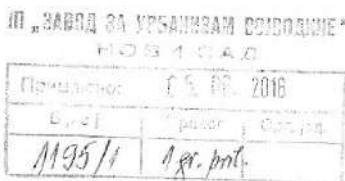 ЈП „ЗАВОД ЗА УРБАНИЗАМ ВОЈВОДИНЕ"
НОВИ САД
Примљено: 2016
Број Прилог
1195/1 1 gr. pril.